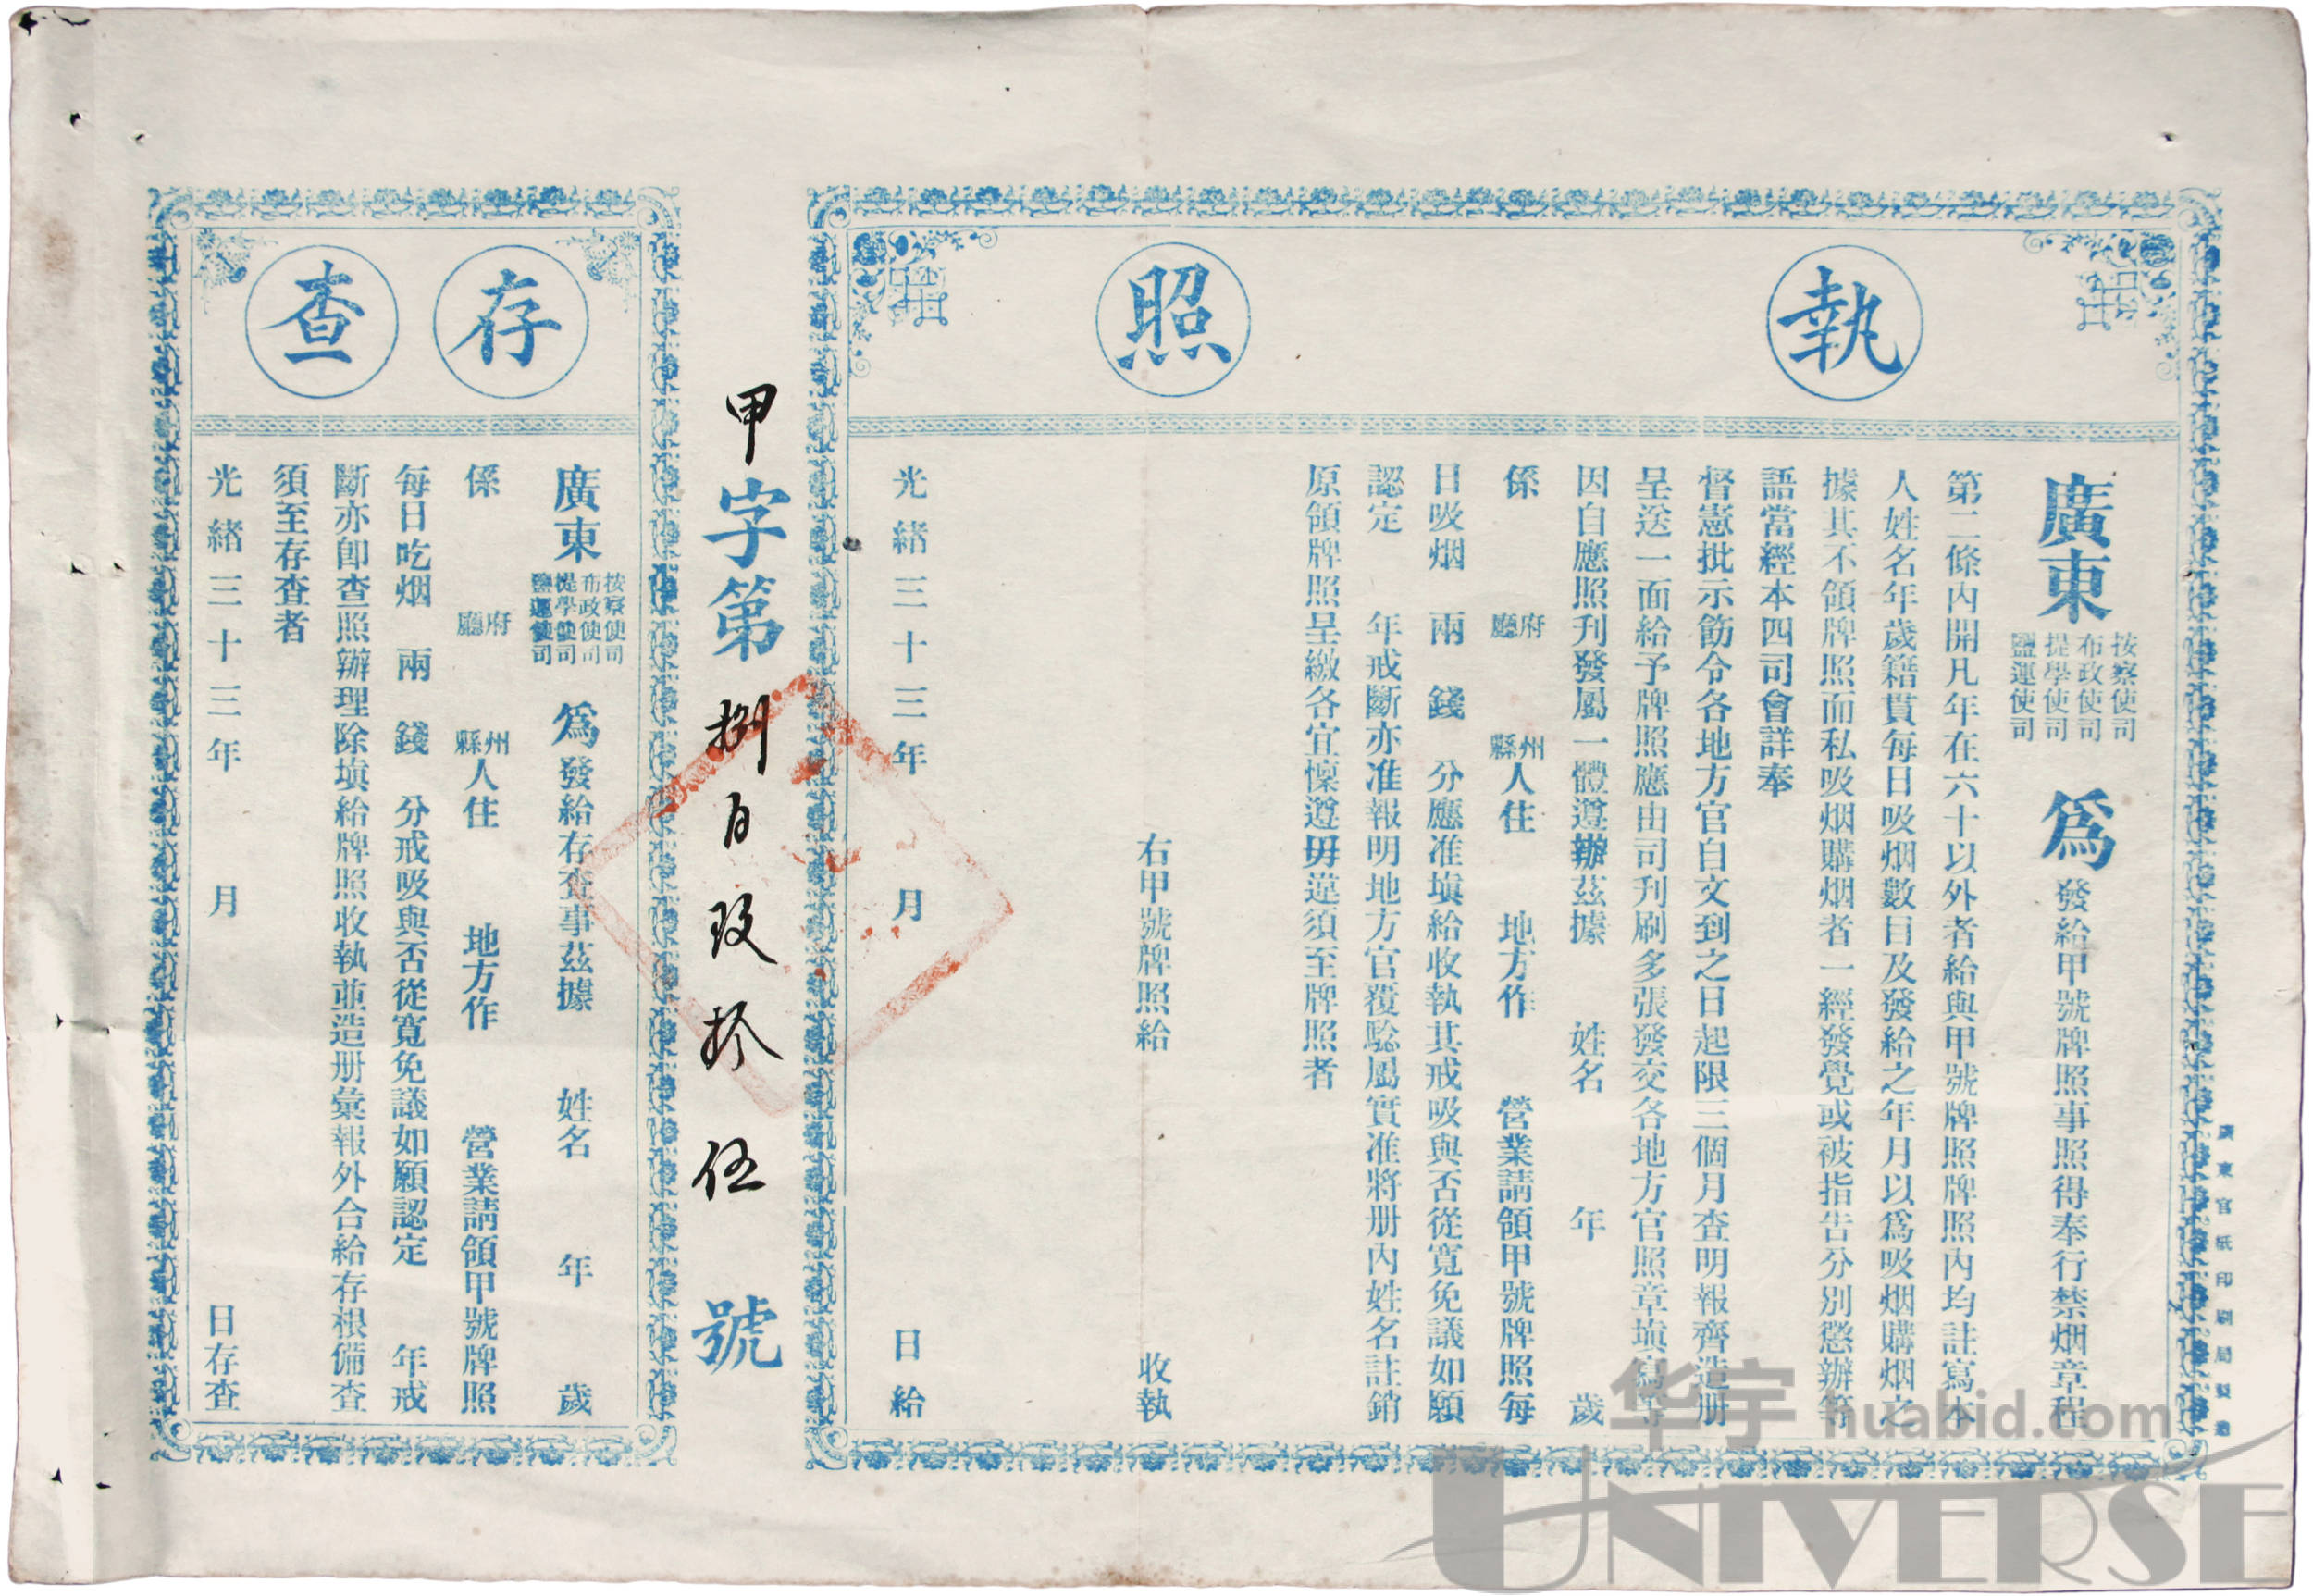 執照
廣東
按察使司
布政使司
提學使司
鹽運使司
為發給甲號牌照事照得奉行禁烟章程
第二條內開凡年在六十以外者給與甲號牌照牌照內均註寫本
人姓名年歲籍貫每日吸烟數目及發給之年月以為吸烟購烟之
據其不領牌照而私吸烟購烟者一經發覺或被指告分別懲辦等
語當經本四司會詳奉
督憲批示筋令各地方官自文到之日起限三個月查明報齊造册
呈送一面給予牌照應由司刊刷多張發交各地方官照章填寫等
因自應照刊發屬一體遵辦茲據 姓名 年 歲
係 府廳 州縣人住 地方作 營業請領甲號牌照每
日吸烟 兩 錢 分應准填給收執其戒吸與否從寬免議如願
認定 年戒斷亦准報明地方官覆騐屬實准將册內姓名註銷
原領牌照呈繳各宜懍遵毋違須至牌照者
右甲號牌照給 收執
光緒三十三年 月 日給
甲字第捌百玖拾伍號
存查
廣東
按察使司
布政使司
提學使司
鹽運使司
為發給存查事茲據 姓名 年 歲
係 府廳 州縣人住 地方作 營業請領甲號牌照
每日吃烟 兩 錢 分戒吸與否從寬免議如願認定 年戒
斷亦卽查照辦理除填給牌照收執並造册彙報外合給存根備查
須至存查者
光緒三十三年 月 日存查
廣東官紙印刷局製造
华宇 huabid.com
UNIVERSE